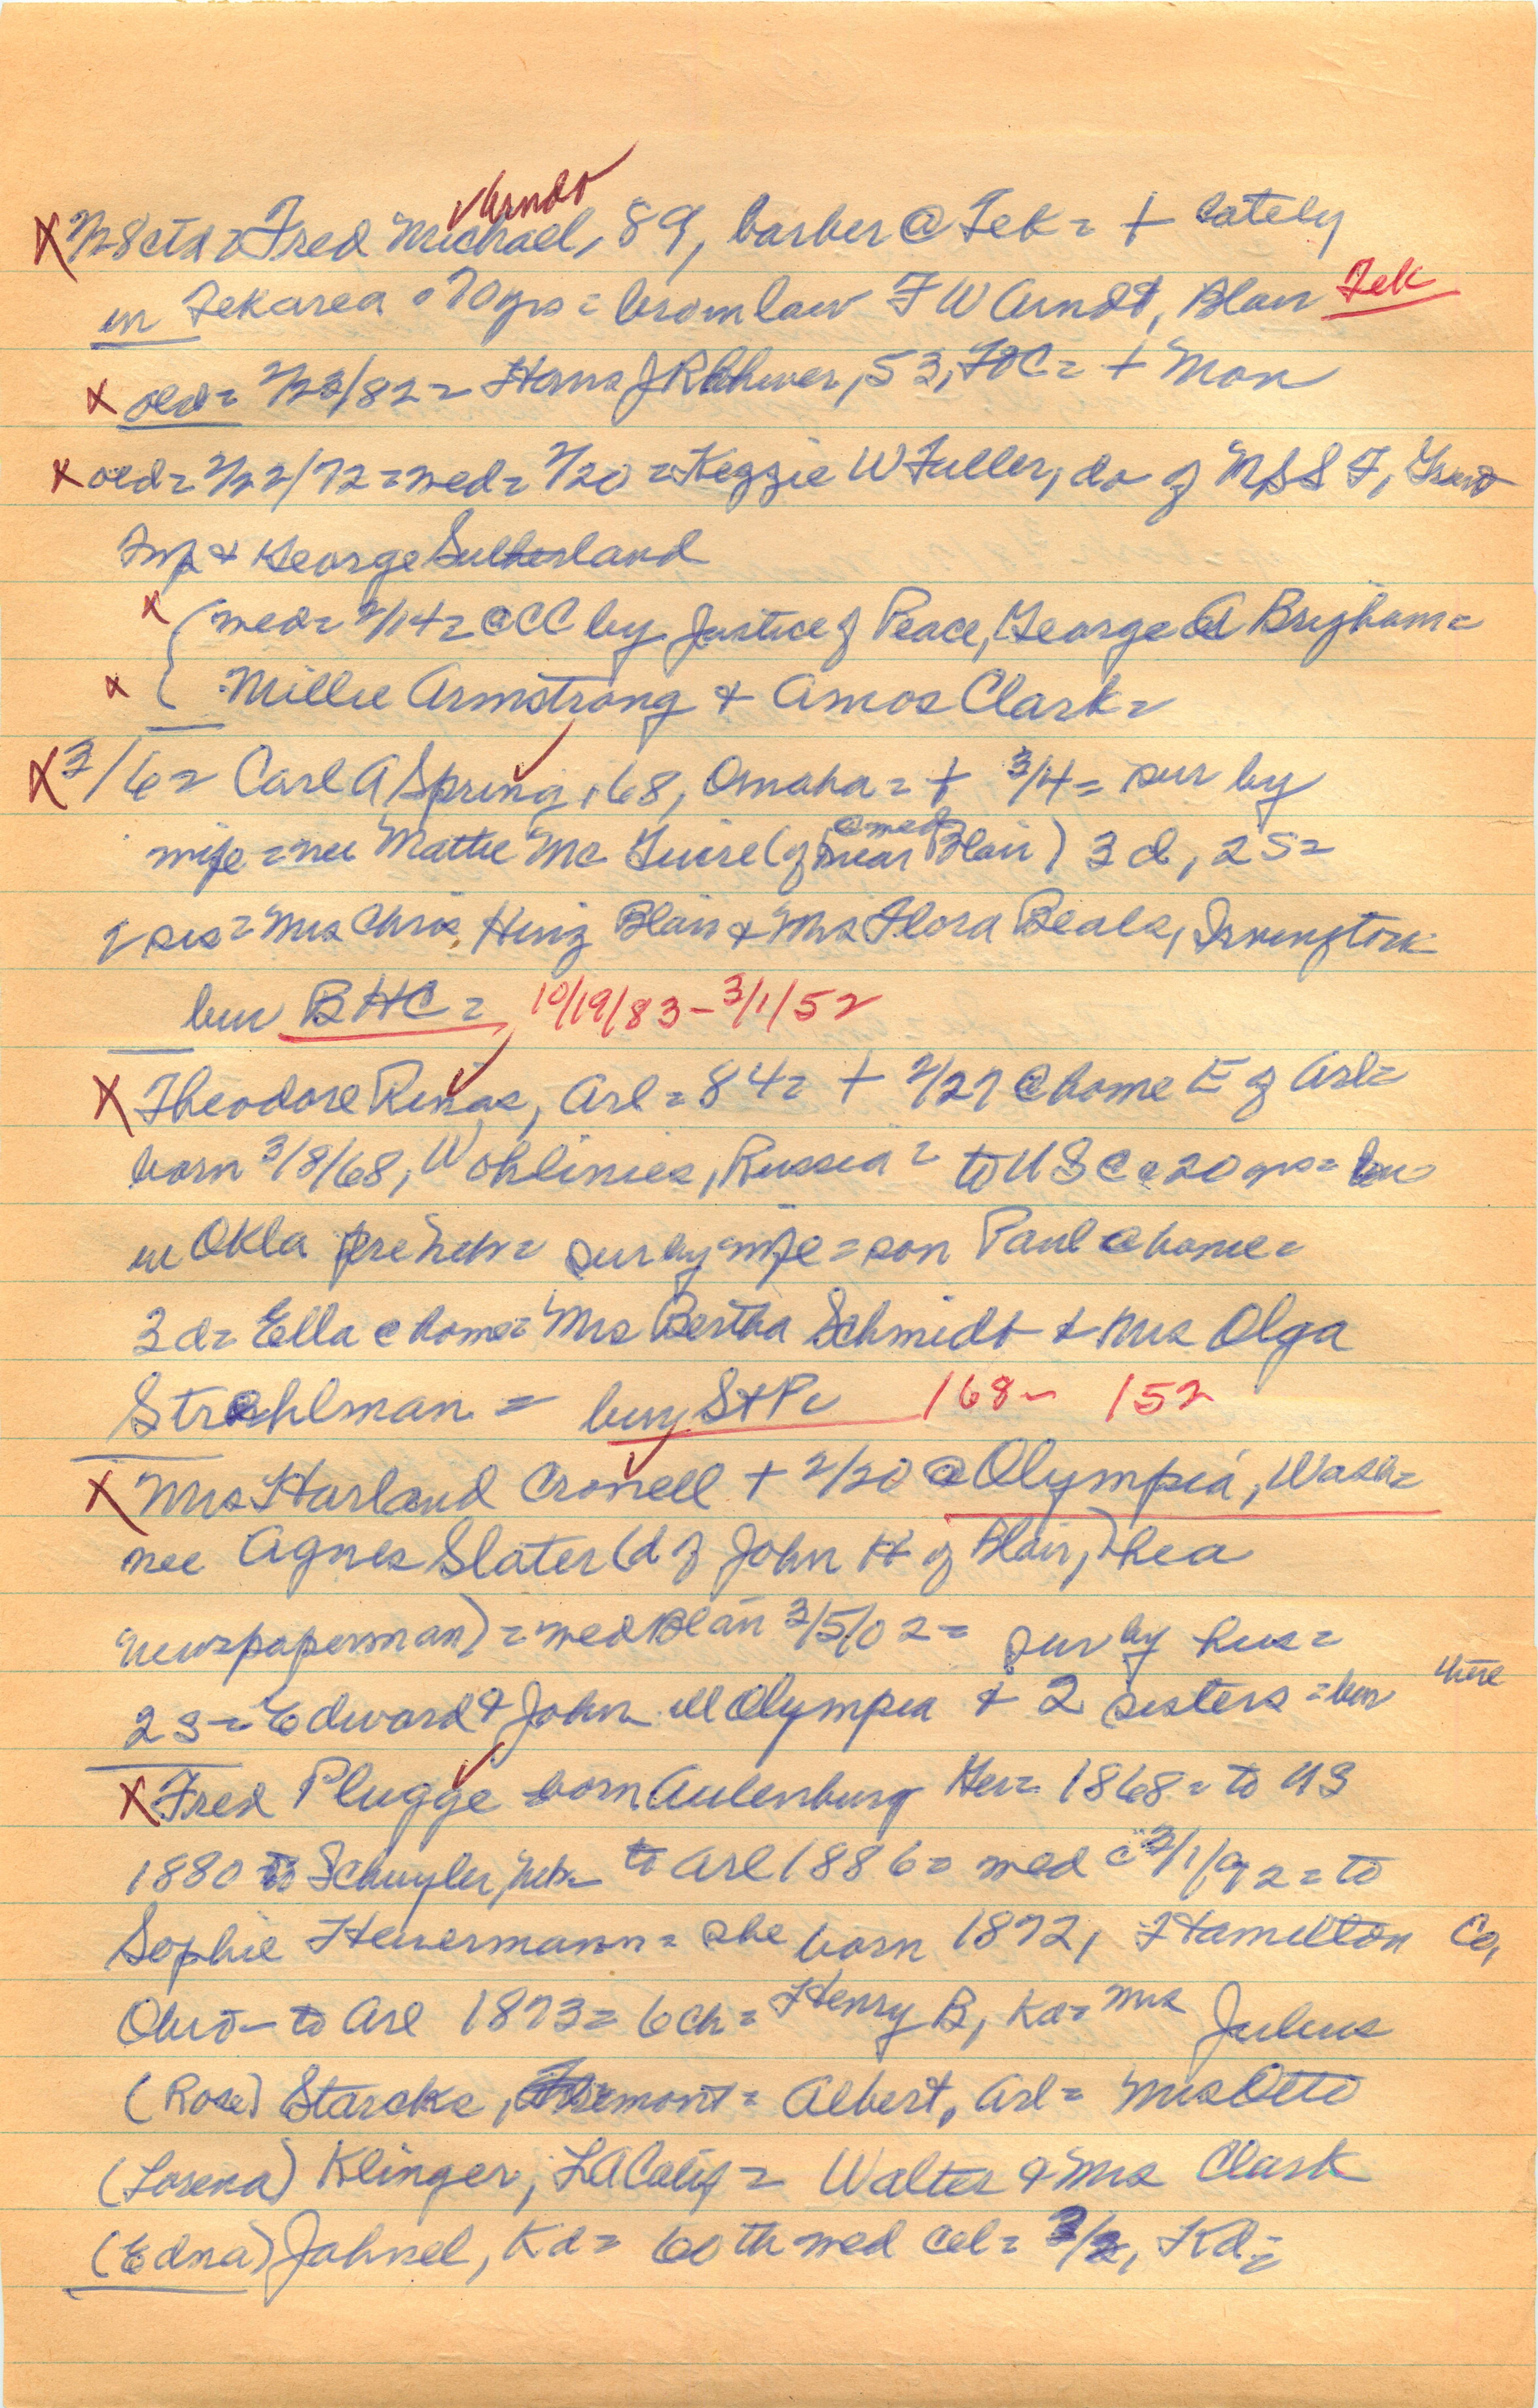 Arndt
X 2/28 ctd = Fred Michael, 89, barber @ Tek = + lately
in Tek area c 70 yrs = bro in law F W Arndt, Blair Tek
X old = 2/23/82 = Hans J Rohwer, 53, FtC = + Mon
X old = 2/22/72 = wed = 2/20 = Kezzie W Fuller, da of S F, Grant
Twp & George Sutherland
X (wed = 2/14 = @ CC by Justice of Peace, George A Brigham =
X ( Millie Armstrong & Amos Clark =
X 3/6 = Carl A Spring, 68, Omaha = + 3/4 = sur by
@ med
wife = nee Mattie Mc Guire (of near Blair) 3 d, 2 S =
2 sis = Mrs Chris Hinz Blair & Mrs Flora Beals, Irvington
bur BHC = 10/19/83 - 3/1/52
X Theodore Rinas, Arl = 84 = + 2/27 @ home E of Arl =
born 3/8/68, Wohlinies, Russia = to US @ c 20 yrs =
in Okla pre Neb = sur by wife = son Paul @ home =
3 d = Ella @ home = Mrs Bertha Schmidt & Mrs Olga
Strahlman = bury St P = 168 - 152
X Mrs Harland Crowell + 2/20 @ Olympia, Wash =
nee Agnes Slater (d of John H of Blair, hea
newspaperman) = wed Blair 3/5/02 = sur by hus =
2 s = Edward & John all Olympia & 2 sisters = bur there
X Fred Plugge born Aulenburg Ger = 1868 = to US
1880 to Schuyler, Neb - to Arl 1886 = wed c 3/1/92 = to
Sophie Heuermann = she born 1872, Hamilton Co,
Ohio - to Arl 1873 = 6 ch = Henry B, Kd = Mrs Julius
(Rose) Starcks, Fremont = Albert, Arl = Mrs Otto
(Lorena) Klinger, LA Calif = Walter & Mrs Clark
(Edna) Jahnel, Kd = 60 th wed cel = 3/2, Kd =